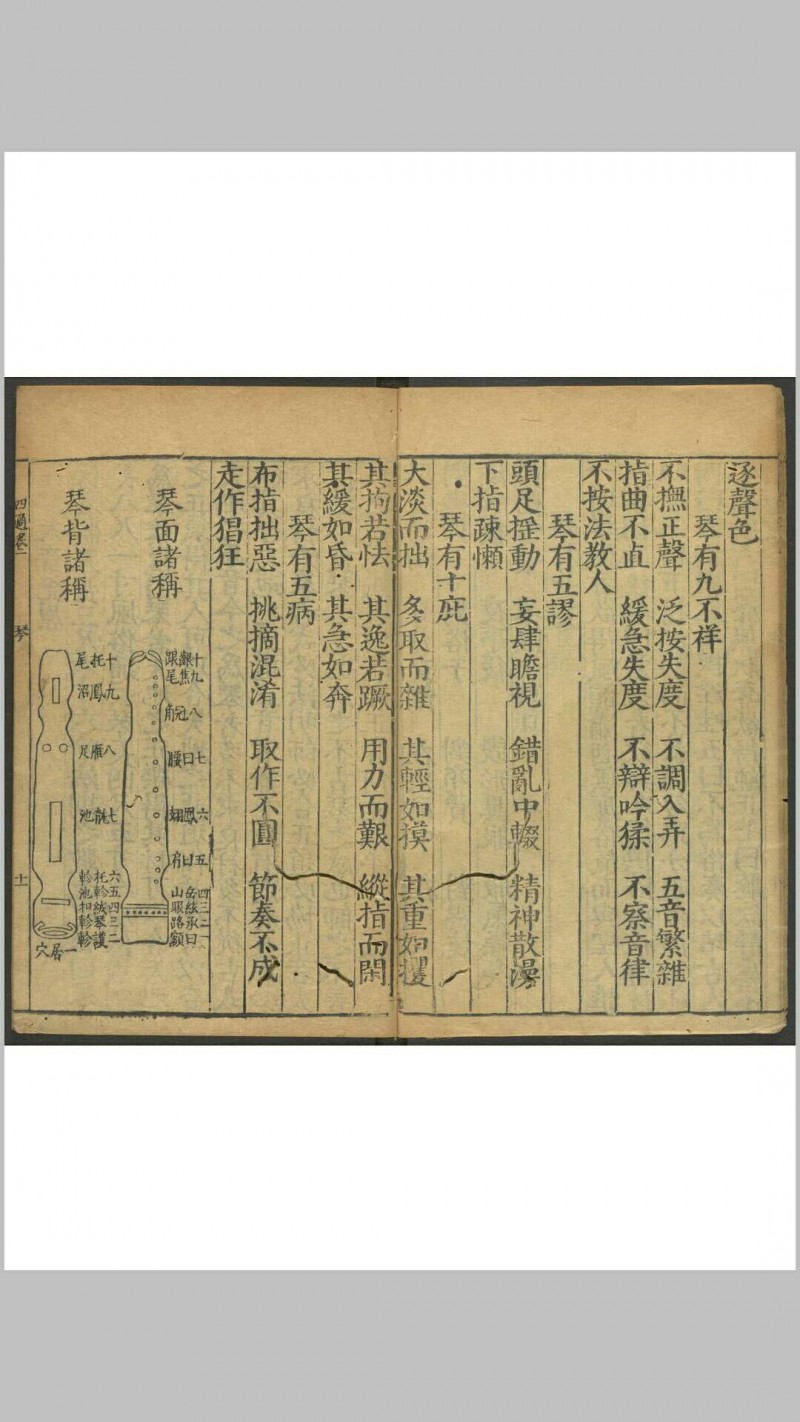 逐聲色
琴有九不祥
不撫正聲　泛按失度　不調入弄　五音繁雜
指曲不直　緩急失度　不辯吟猱　不察音律
不按法教人
琴有五謬
頭足揺動　妄肆瞻視　錯亂中輟　精神散漫
下指疎懶
琴有十疵
大淡而拙　多取而雜　其輕如摸　其重如攫
其拘若怯　其逸若蹶　用力而艱　縱指而閑
其緩如昏　其急如奔
琴有五病
布指拙惡　挑摘混淆　取作不圓　節奏不成
走作猖狂
琴面諸稱
十
九焦尾
八冠角
七曰腰
六鳳翅
五曰肩
四岳山
三絃眼
二承路
一曰額
琴背諸稱
十托尾
九鳳沼
八雁足
七龍池
六托軫
五軫池
四絨扣
三琴軫
二護軫
一居穴
琴
十一